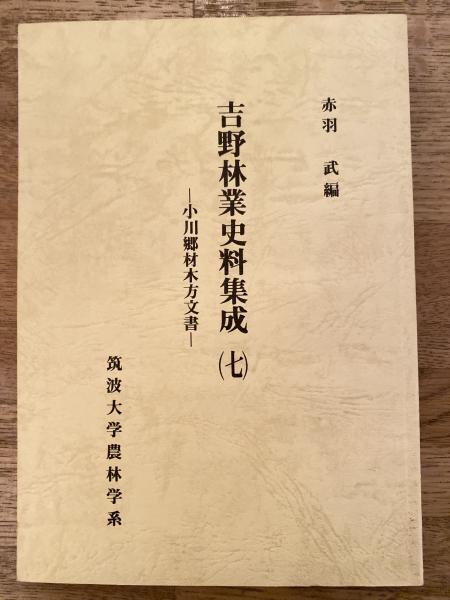 赤羽 武編
吉野林業史料集成(七)
―小川郷材木方文書―
筑波大学農林学系